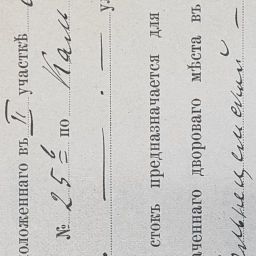 оложеннаго въ II участкѣ
№ 25 б по Кам
у
стокъ предназначается для
аченнаго дворового мѣста въ